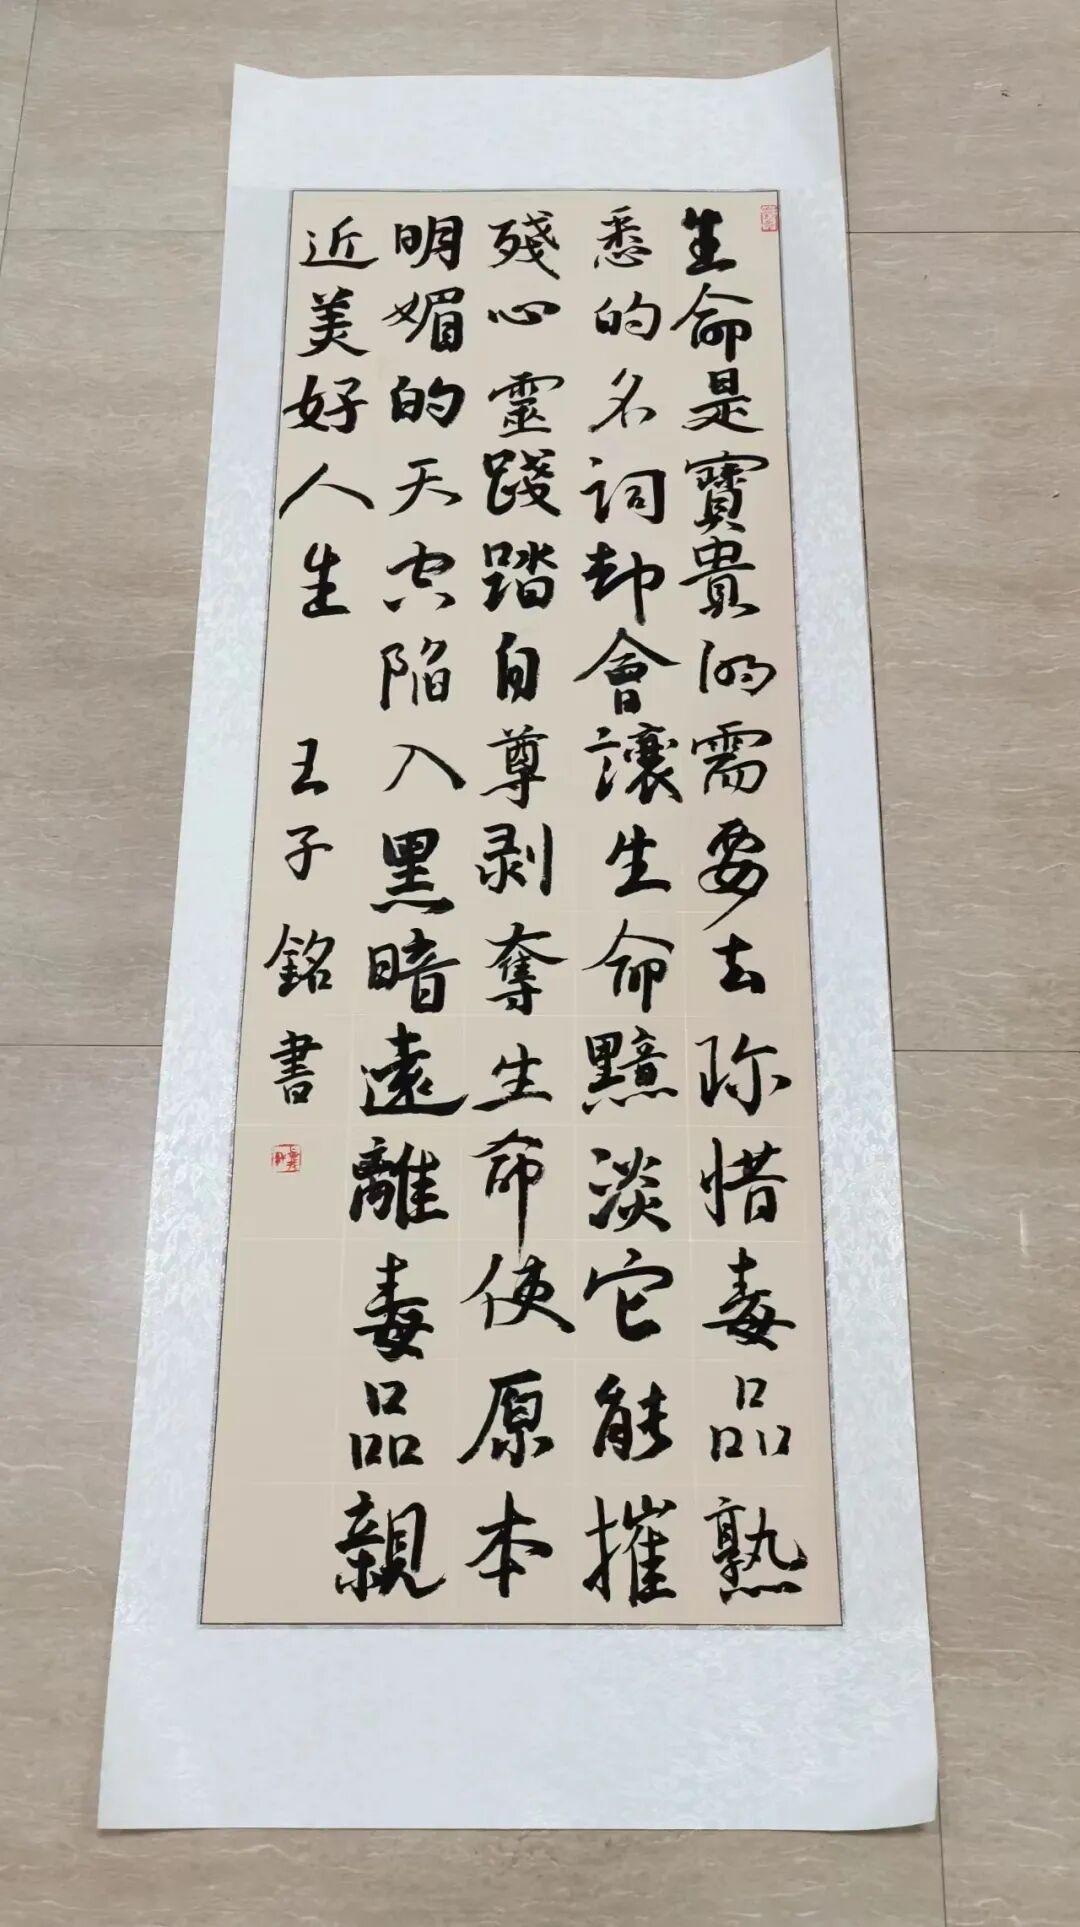 生命是寶貴的需要去珍惜毒品熟
悉的名詞却會讓生命黯淡它能摧
殘心靈踐踏自尊剥奪生命使原本
明媚的天空陷入黑暗遠離毒品親
近美好人生 王子銘書